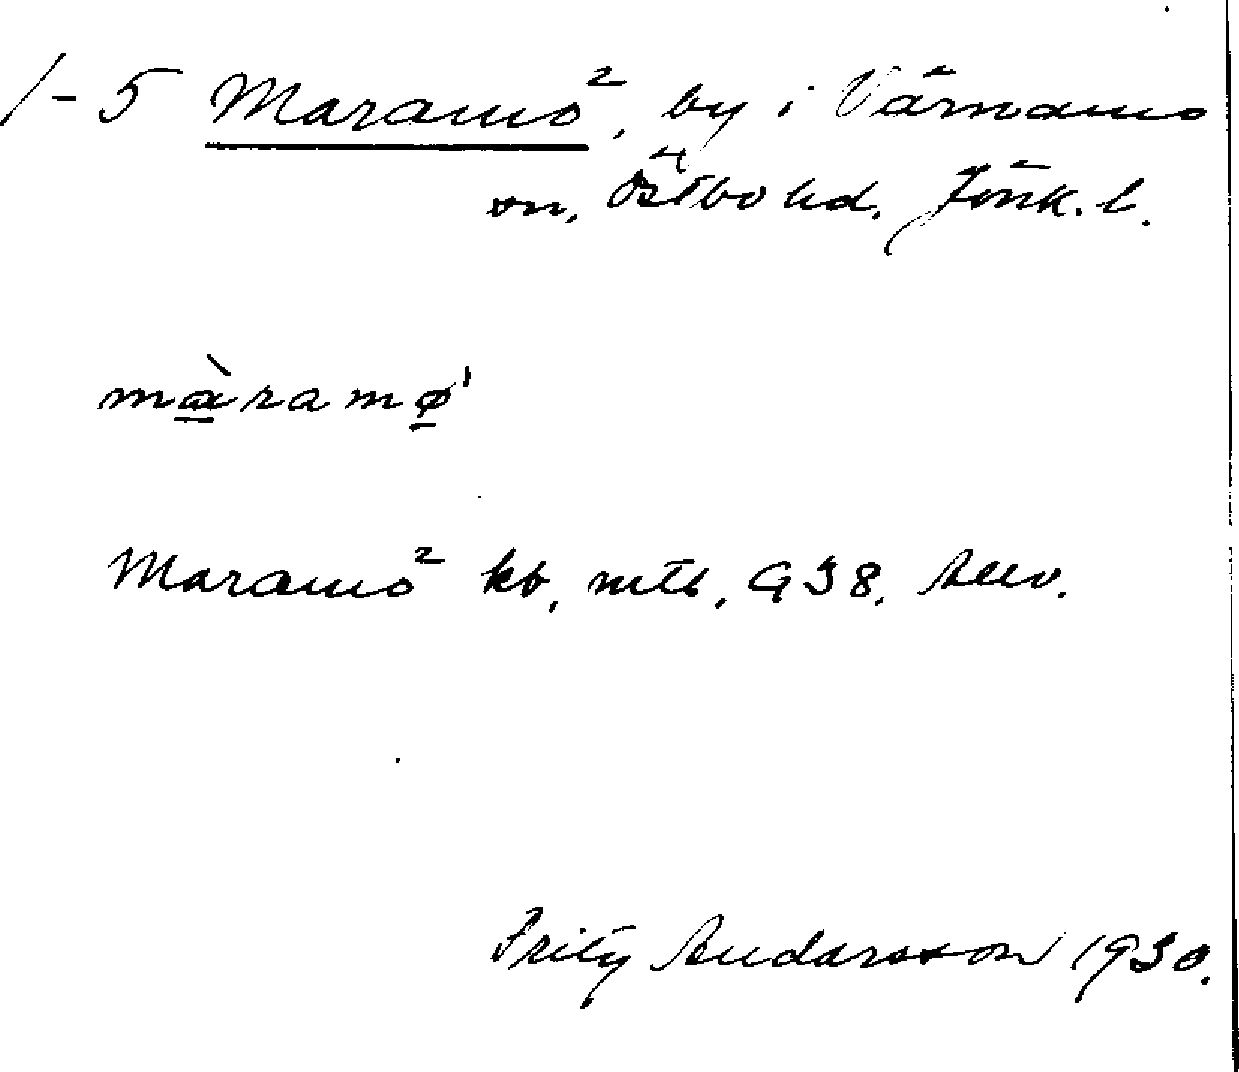 1-5 Maramö, by i Värnamo
sn, Östbo hd. Jönk. l.
màramø'
Maramö kb, mtb, G38.
Fritz Andersson 1930.